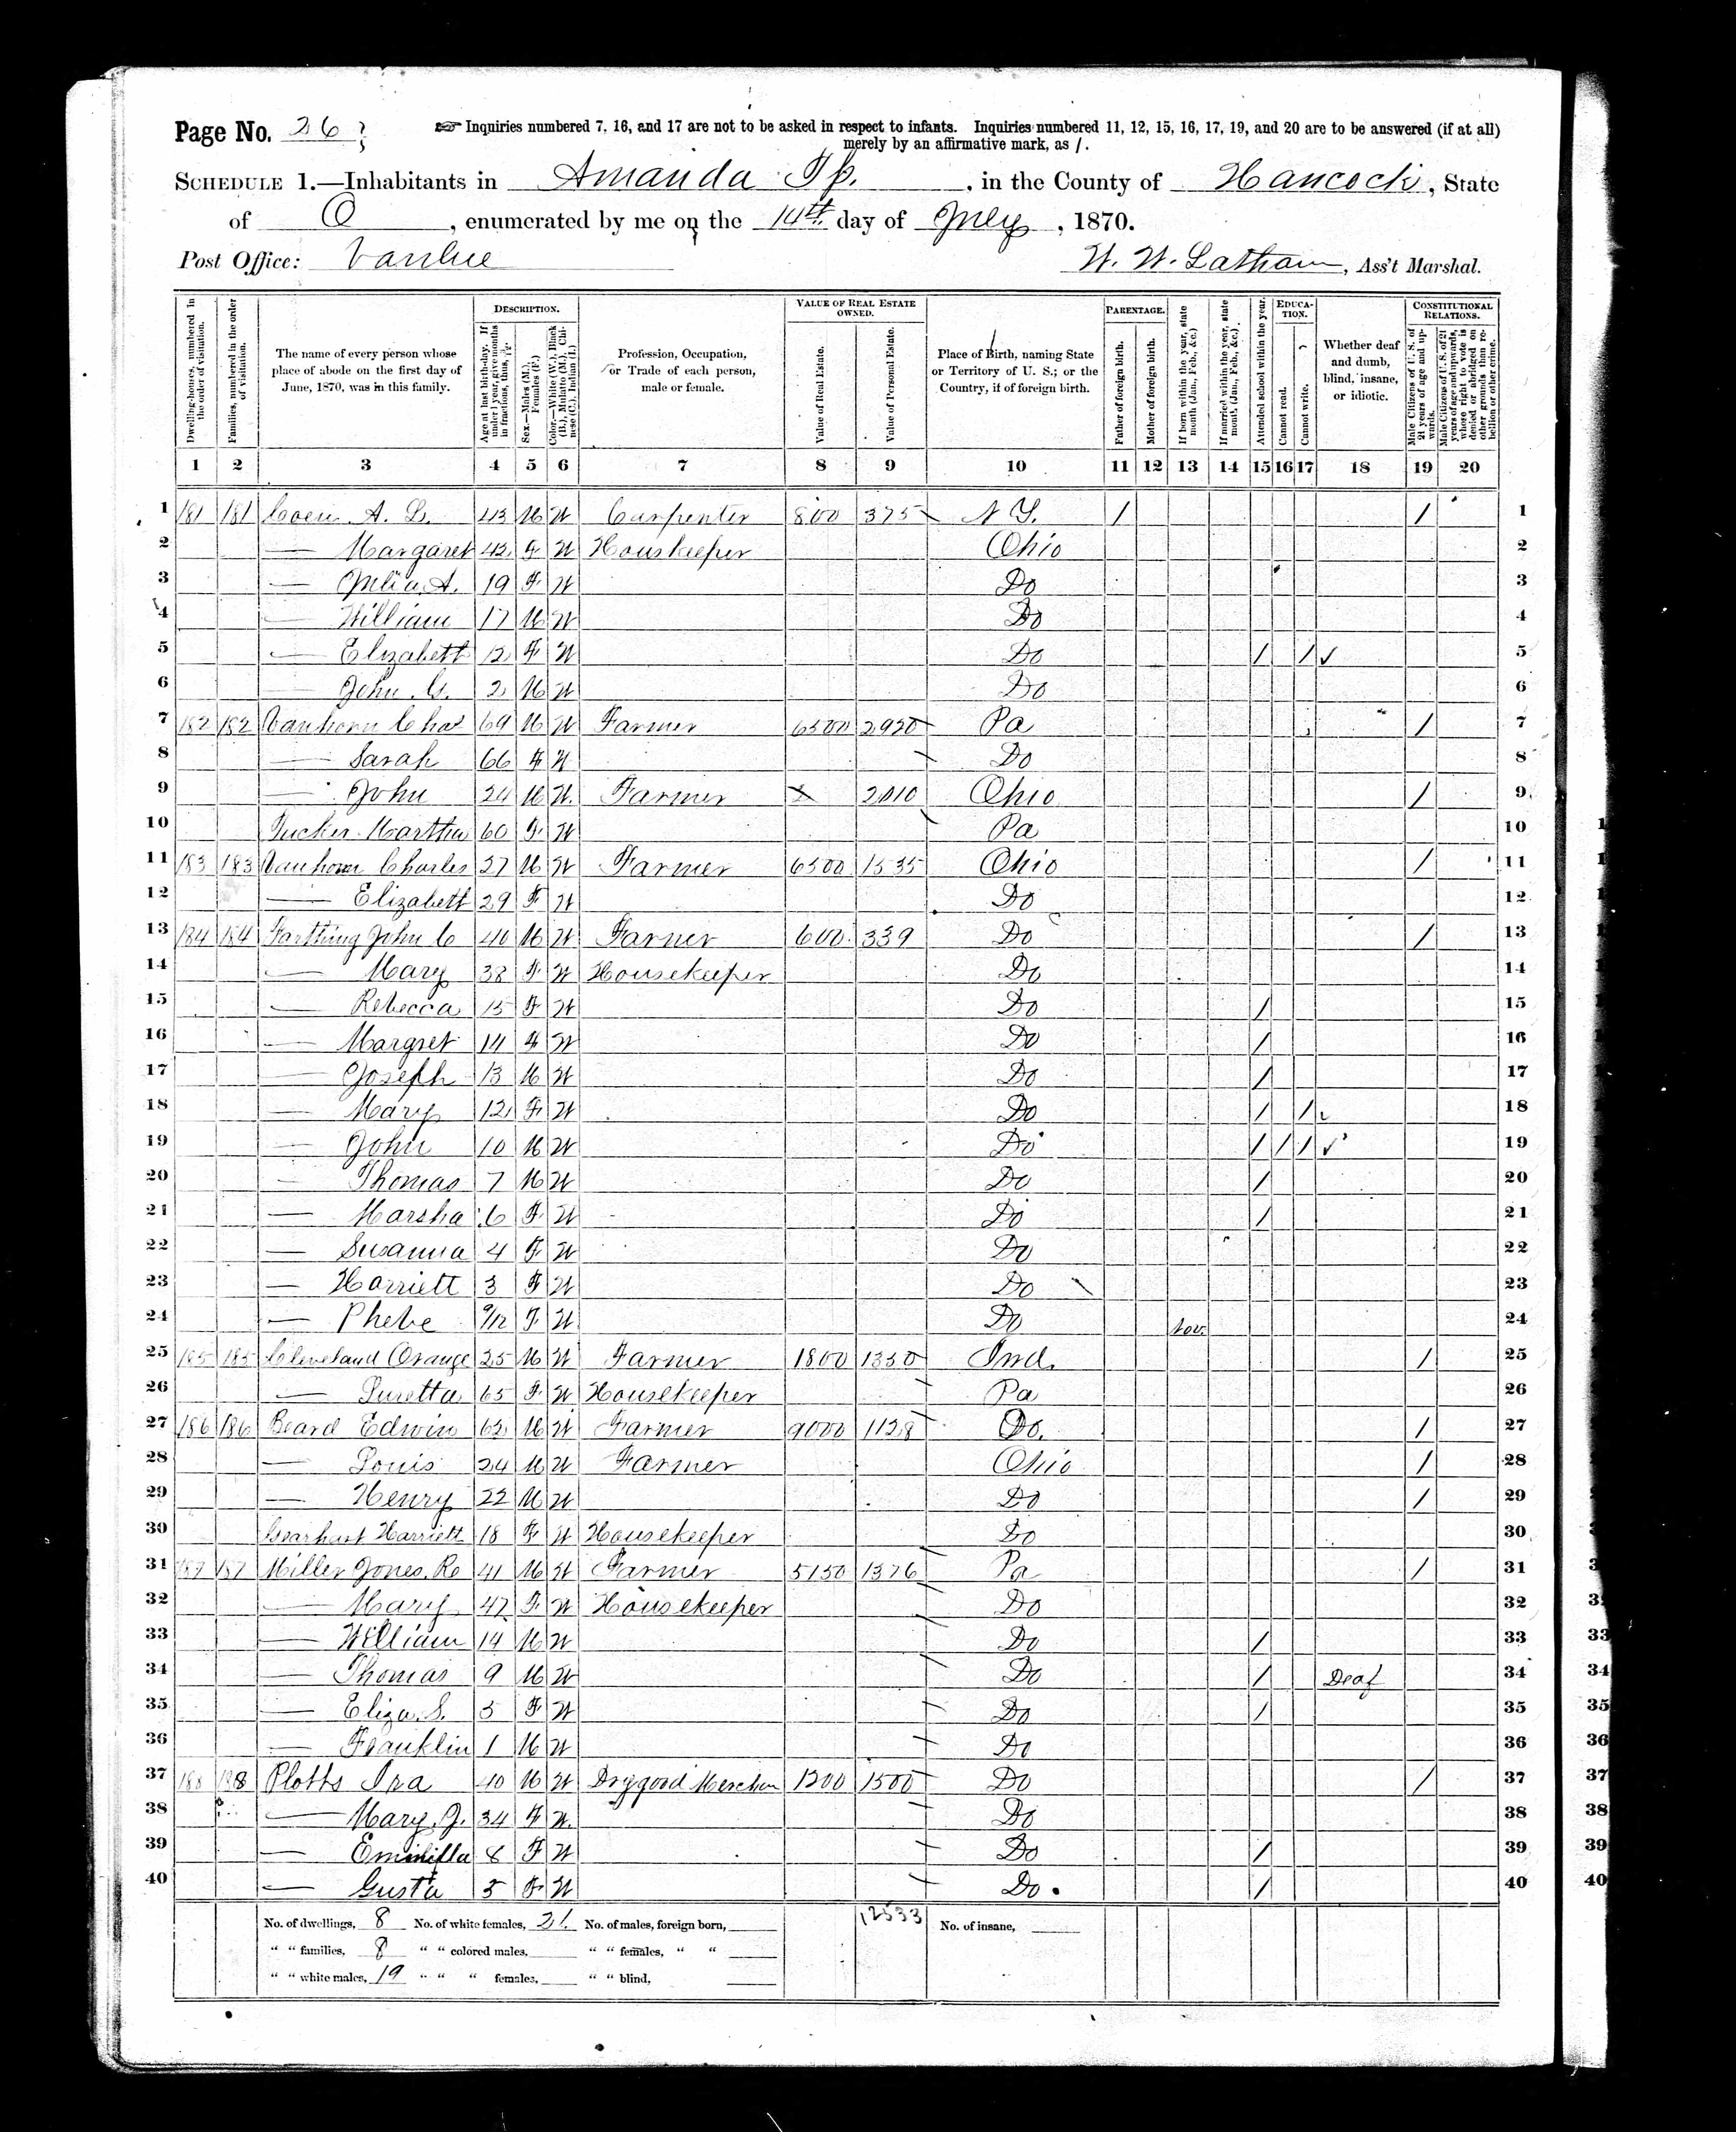 Page No. 26
☞ Inquiries numbered 7, 16, and 17 are not to be asked in respect to infants. Inquiries numbered 11, 12, 15, 16, 17, 19, and 20 are to be answered (if at all)
merely by an affirmative mark, as /.
SCHEDULE 1.—Inhabitants in Amanda Tp. , in the County of Hancock , State
of O , enumerated by me on the 14th day of July , 1870.
Post Office: Vanlue W. W. Latham , Ass't Marshal.
Dwelling-houses, numbered in the order of visitation.
Families, numbered in the order of visitation.
The name of every person whose place of abode on the first day of June, 1870, was in this family.
DESCRIPTION.
Age at last birth-day. If under 1 year, give months in fractions, thus, 3/12.
Sex.—Males (M.), Females (F.)
Color.—White (W.), Black (B.), Mulatto (M.), Chinese (C.), Indian (I.)
Profession, Occupation, or Trade of each person, male or female.
VALUE OF REAL ESTATE OWNED.
Value of Real Estate.
Value of Personal Estate.
Place of Birth, naming State or Territory of U. S.; or the Country, if of foreign birth.
PARENTAGE.
Father of foreign birth.
Mother of foreign birth.
If born within the year, state month (Jan., Feb., &c.)
If married within the year, state month (Jan., Feb., &c.)
Attended school within the year.
EDUCATION.
Cannot read.
Cannot write.
Whether deaf and dumb, blind, insane, or idiotic.
CONSTITUTIONAL RELATIONS.
Male Citizens of U. S. of 21 years of age and upwards.
Male Citizens of U. S. of 21 years of age and upwards, whose right to vote is denied or abridged on other grounds than rebellion or other crime.
1 2 3 4 5 6 7 8 9 10 11 12 13 14 15 16 17 18 19 20
1 181 181 A. 43 M W Carpenter 800 375 N Y. / / 1
2 — Margaret 42 F W Houskeeper Ohio 2
3 — Julia A. 19 F W Do 3
4 — William 17 M W Do 4
5 — Elizabett 12 F W Do / / ✓ 5
6 — John 2 M W Do 6
7 182 182 Vanhorn Chas 69 M W Farmer 6500 2920 Pa / 7
8 — Sarah 66 F W Do 8
9 — John 24 M W. Farmer x 2010 Ohio / 9
10 Tucker Martha 60 F W Pa 10
11 183 183 Vanhorn Charles 27 M W Farmer 6500 1535 Ohio / 11
12 — Elizabett 29 F W Do 12
13 184 184 Farthing John C 40 M W Farmer 600 339 Do / 13
14 — Mary 38 F W Housekeeper Do 14
15 — Rebecca 15 F W Do / 15
16 — Margret 14 F W Do / 16
17 — Joseph 13 M W Do / 17
18 — Mary 12 F W Do / / 18
19 — John 10 M W Do / / / ✓ 19
20 — Thomas 7 M W Do / 20
21 — Marsha 6 F W Do / 21
22 — Susanna 4 F W Do 22
23 — Harriett 3 F W Do 23
24 — Phebe 9/12 F W Do Nov. 24
25 185 185 Cleveland Orange 25 M W Farmer 1800 1350 Ind. / 25
26 — Luretta 65 F W Housekeeper Pa 26
27 186 186 Beard Edwin 62 M W Farmer 9000 1128 Do. / 27
28 — Louis 24 M W Farmer Ohio / 28
29 — Henry 22 M W Do / 29
30 Gearhart Harriett 18 F W Housekeeper Do 30
31 187 187 Miller Jones. 41 M W Farmer 5150 1376 Pa / 31
32 — Mary 47 F W Housekeeper Do 32
33 — William 14 M W Do / 33
34 — Thomas 9 M W Do / Deaf 34
35 — Eliza. S. 5 F W Do / 35
36 — Franklin 1 M W Do 36
37 188 188 Plotts Ira 40 M W Drygood Merchan 1200 1500 Do / 37
38 — Mary. J. 34 F W. Do 38
39 — 8 F W Do / 39
40 — Gusta 5 F W Do. / 40
No. of dwellings, 8 No. of white females, 21. No. of males, foreign born, 12533 No. of insane,
" " families, 8 " " colored males, " " females, " "
" " white males, 19 " " " females, " " blind,
33
34
35
36
37
38
39
40